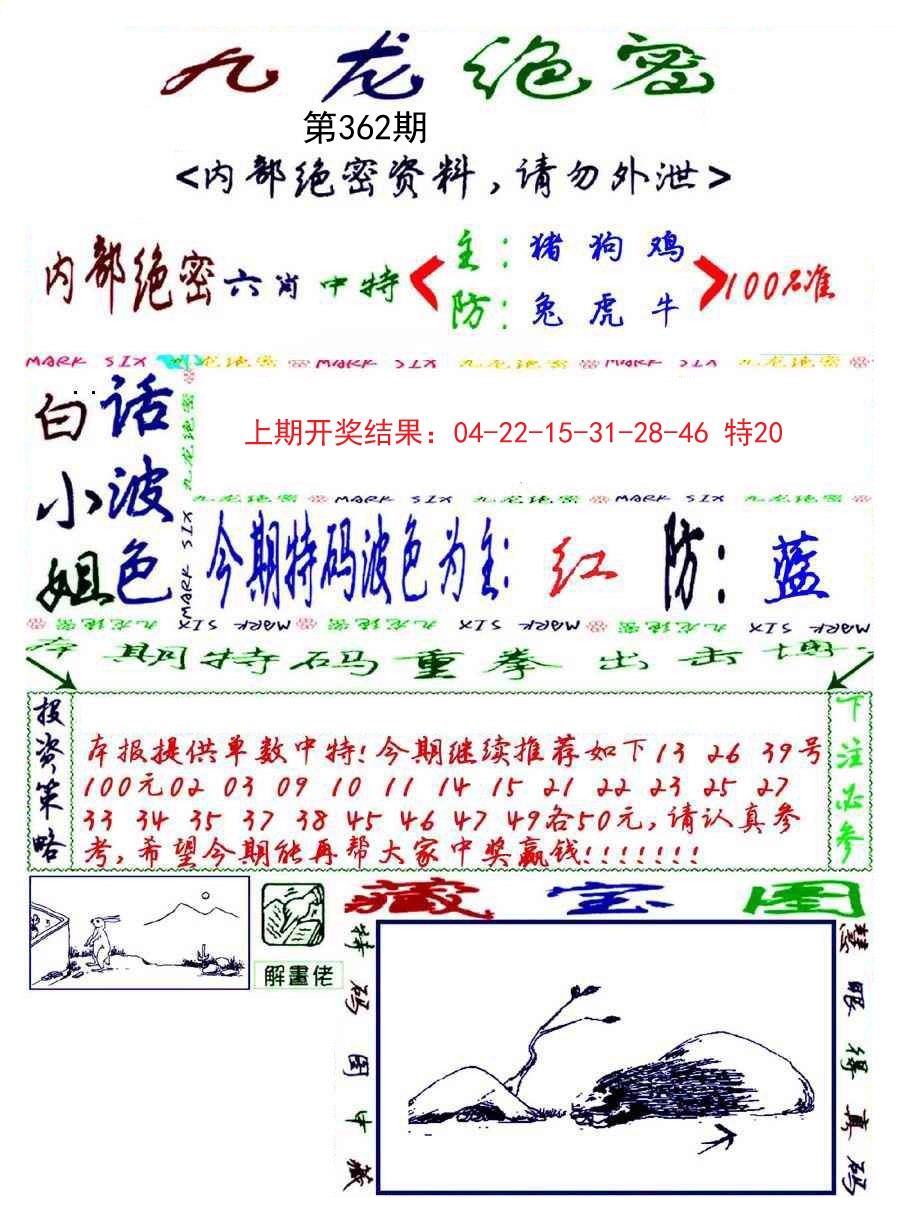 九龙绝密
第362期
<内部绝密资料,请勿外泄>
内部绝密六肖中特
主:猪狗鸡
防:兔虎牛
100%准
MARK SIX 九龙绝密 MARK SIX 九龙绝密 MARK SIX 九龙绝密
白话小姐
波色
九龙绝密 MARK SIX
上期开奖结果：04-22-15-31-28-46 特20
九龙绝密 MARK SIX 九龙绝密 MARK SIX 九龙绝密
今期特码波色为主:红 防:蓝
九龙绝密 MARK SIX MARK SIX 九龙绝密 MARK SIX 九龙绝密 MARK SIX
本期特码重拳出击
投资策略
本报提供单数中特!今期继续推荐如下13 26 39号
100元02 03 09 10 11 14 15 21 22 23 25 27
33 34 35 37 38 45 46 47 49各50元,请认真参
考,希望今期能再帮大家中奖赢钱!!!!!!!
下注必参
藏宝图
解畫佬
特码图中藏
慧眼得真码